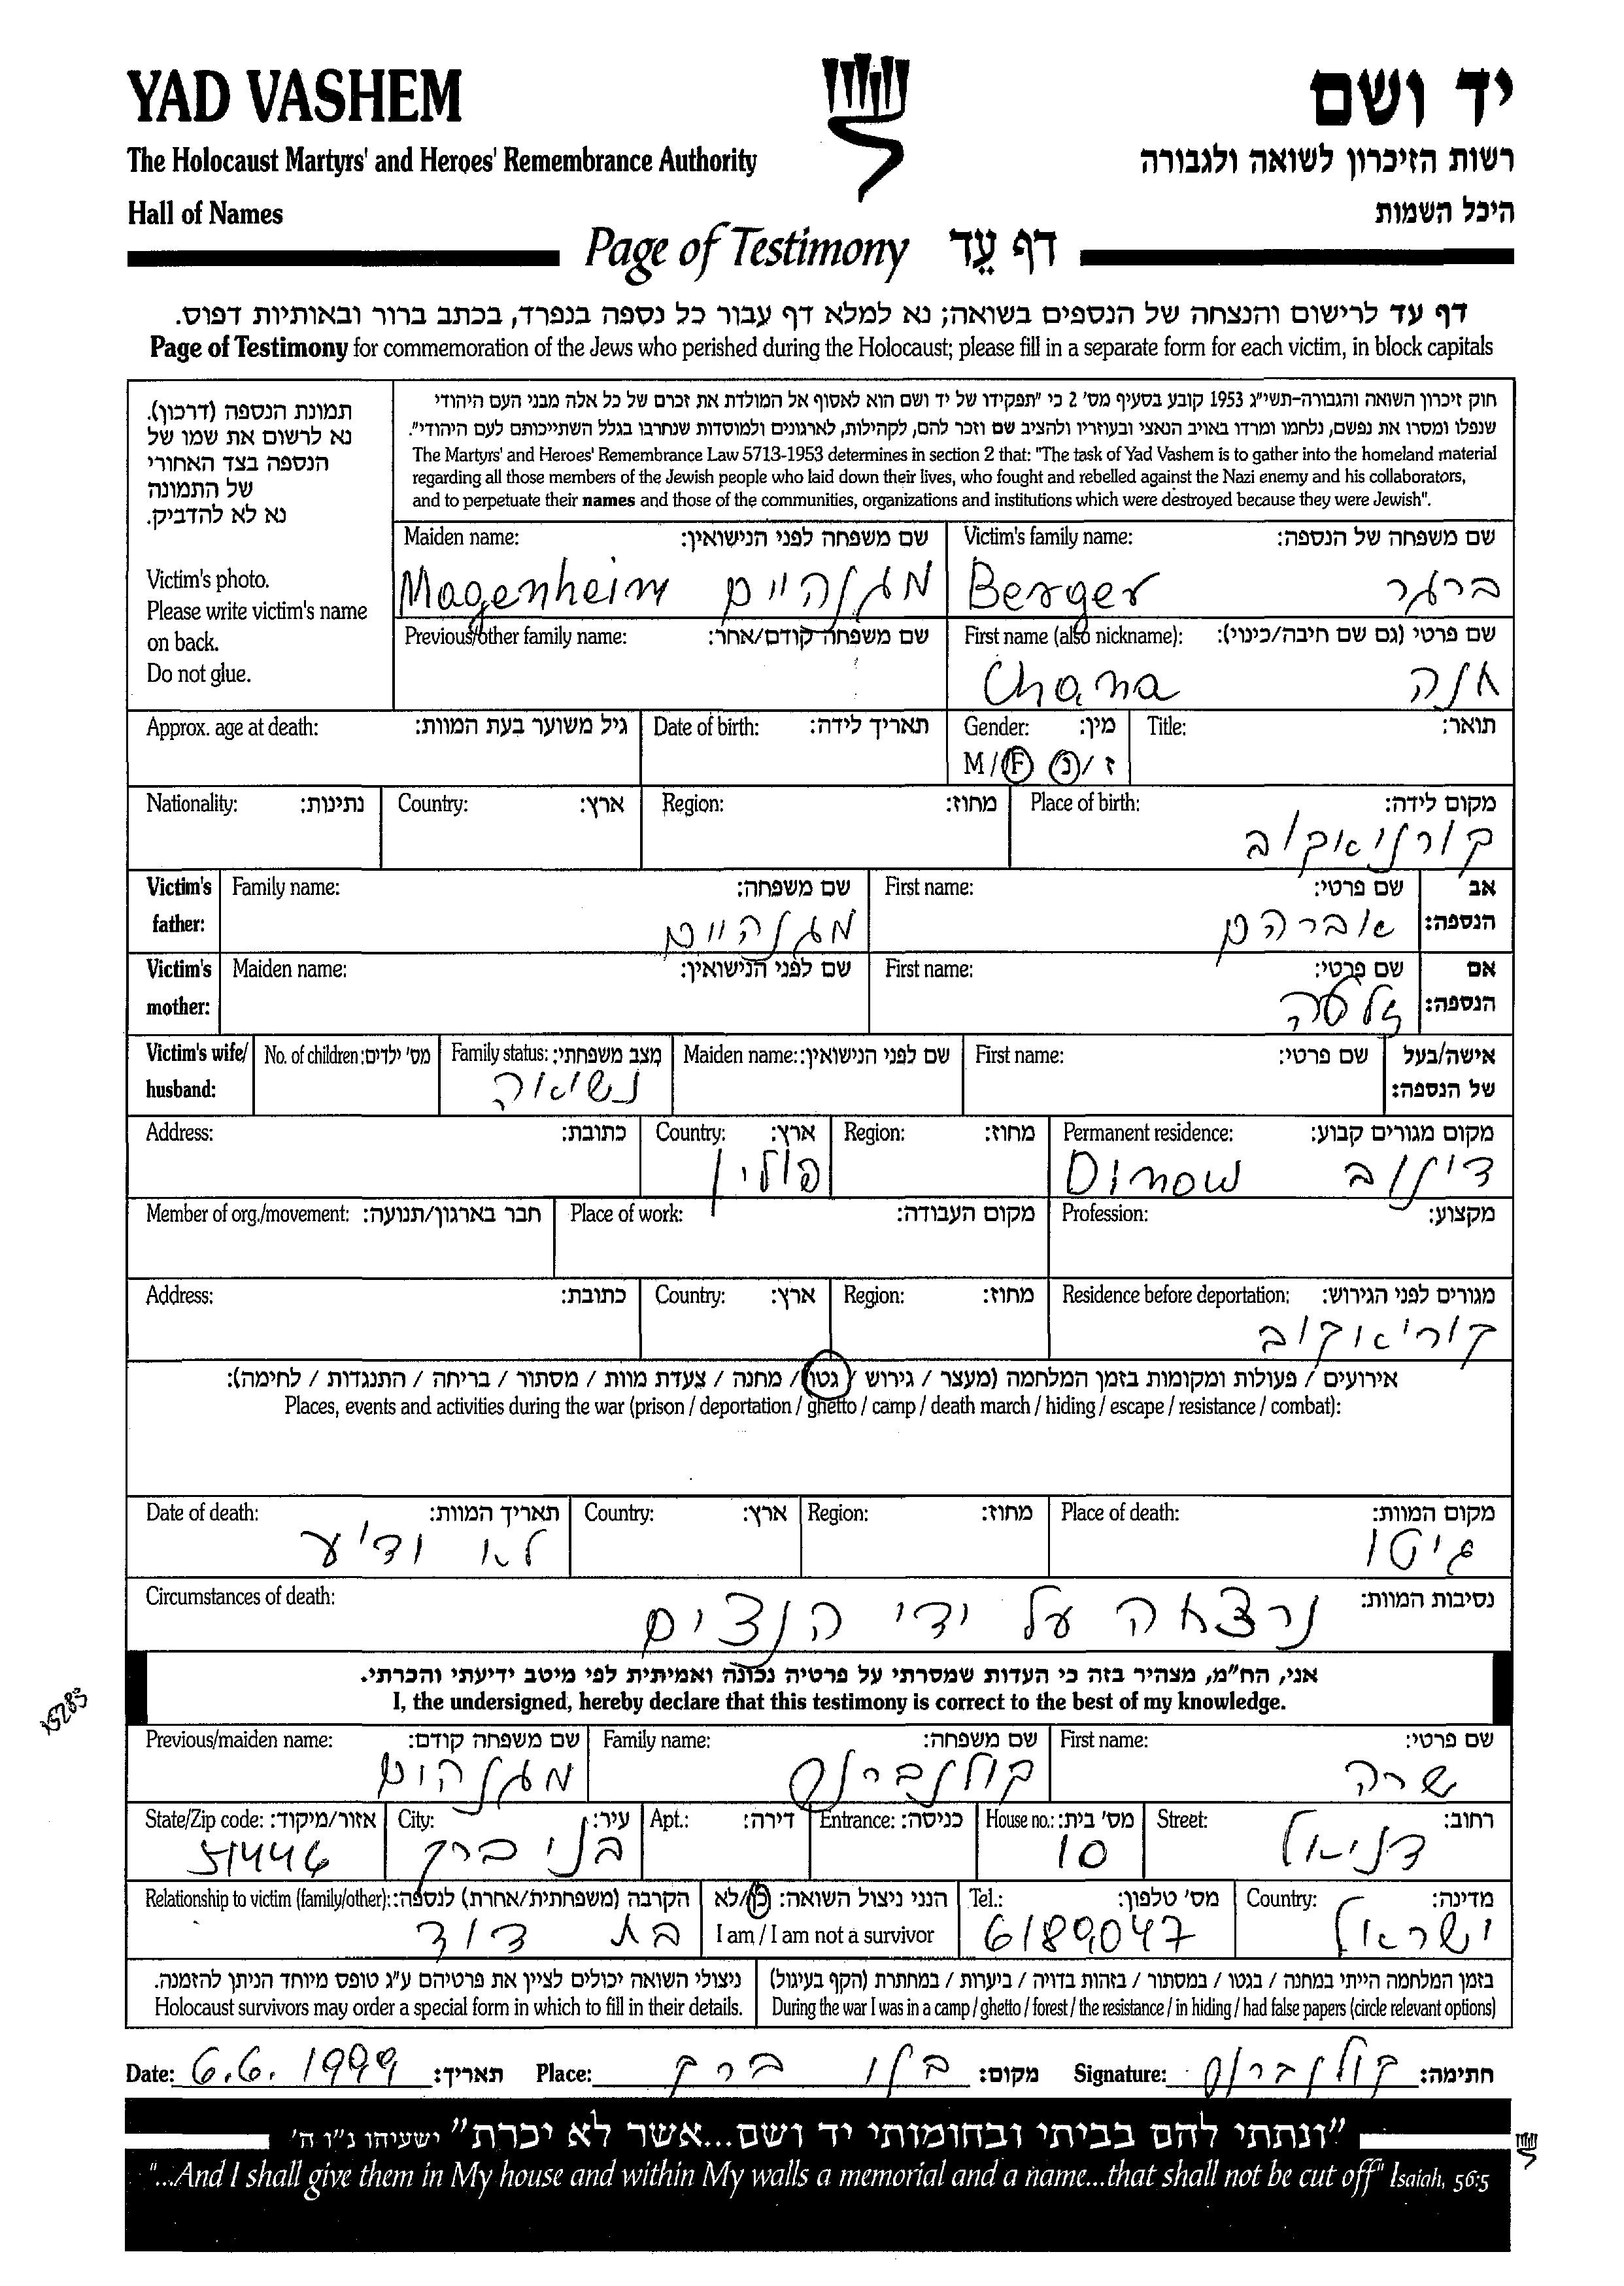 YAD VASHEM
יד ושם
The Holocaust Martyrs' and Heroes' Remembrance Authority
רשות הזיכרון לשואה ולגבורה
Hall of Names
היכל השמות
Page of Testimony דף עֵד
דף עד לרישום והנצחה של הנספים בשואה; נא למלא דף עבור כל נספה בנפרד, בכתב ברור ובאותיות דפוס.
Page of Testimony for commemoration of the Jews who perished during the Holocaust; please fill in a separate form for each victim, in block capitals
תמונת הנספה (דרכון).
נא לרשום את שמו של
הנספה בצד האחורי
של התמונה
נא לא להדביק.
Victim's photo.
Please write victim's name
on back.
Do not glue.
חוק זיכרון השואה והגבורה-תשי"ג 1953 קובע בסעיף מס' 2 כי "תפקידו של יד ושם הוא לאסוף אל המולדת את זכרם של כל אלה מבני העם היהודי
שנפלו ומסרו את נפשם, נלחמו ומרדו באויב הנאצי ובעוזריו ולהציב שם וזכר להם, לקהילות, לארגונים ולמוסדות שנחרבו בגלל השתייכותם לעם היהודי".
The Martyrs' and Heroes' Remembrance Law 5713-1953 determines in section 2 that: "The task of Yad Vashem is to gather into the homeland material
regarding all those members of the Jewish people who laid down their lives, who fought and rebelled against the Nazi enemy and his collaborators,
and to perpetuate their names and those of the communities, organizations and institutions which were destroyed because they were Jewish".
Victim's family name: שם משפחה של הנספה:
Berger ברגר
Maiden name: שם משפחה לפני הנישואין:
Magenheim מגנהיים
First name (also nickname): שם פרטי (גם שם חיבה/כינוי):
Chana אנה
Previous/other family name: שם משפחה קודם/אחר:
Title: תואר:
Gender: מין:
M / F נ / ז
Date of birth: תאריך לידה:
Approx. age at death: גיל משוער בעת המוות:
Place of birth: מקום לידה:
קורניאקוב
Region: מחוז:
Country: ארץ:
Nationality: נתינות:
Victim's father: אב הנספה:
First name: שם פרטי:
אברהם
Family name: שם משפחה:
מגנהיים
Victim's mother: אם הנספה:
First name: שם פרטי:
זלטה
Maiden name: שם לפני הנישואין:
Victim's wife/ husband: אישה/בעל של הנספה:
First name: שם פרטי:
Maiden name: שם לפני הנישואין:
Family status: מצב משפחתי:
נשואה
No. of children: מס' ילדים:
Permanent residence: מקום מגורים קבוע:
Dinow דינוב
Region: מחוז:
Country: ארץ:
פולין
Address: כתובת:
Profession: מקצוע:
Place of work: מקום העבודה:
Member of org./movement: חבר בארגון/תנועה:
Residence before deportation: מגורים לפני הגירוש:
קוריאקוב
Region: מחוז:
Country: ארץ:
Address: כתובת:
אירועים / פעולות ומקומות בזמן המלחמה (מעצר / גירוש / גטו / מחנה / צעדת מוות / מסתור / בריחה / התנגדות / לחימה):
Places, events and activities during the war (prison / deportation / ghetto / camp / death march / hiding / escape / resistance / combat):
Place of death: מקום המוות:
גיטו
Region: מחוז:
Country: ארץ:
Date of death: תאריך המוות:
לא ודיע
Circumstances of death: נסיבות המוות:
נרצחה על ידי הנצים
אני, הח"מ, מצהיר בזה כי העדות שמסרתי על פרטיה נכונה ואמיתית לפי מיטב ידיעתי והכרתי.
I, the undersigned, hereby declare that this testimony is correct to the best of my knowledge.
15283
First name: שם פרטי:
שרה
Family name: שם משפחה:
קולנברנף
Previous/maiden name: שם משפחה קודם:
מגנהים
Street: רחוב:
דניאל
House no.: מס' בית:
10
Entrance: כניסה:
Apt.: דירה:
City: עיר:
בני ברק
State/Zip code: אזור/מיקוד:
51446
Country: מדינה:
ישראל
Tel.: מס' טלפון:
6189047
הנני ניצול השואה: כן/לא
I am / I am not a survivor
Relationship to victim (family/other): הקרבה (משפחתית/אחרת) לנספה:
בת דוד
בזמן המלחמה הייתי במחנה / בגטו / במסתור / בזהות בדויה / ביערות / במחתרת (הקף בעיגול)
During the war I was in a camp / ghetto / forest / the resistance / in hiding / had false papers (circle relevant options)
ניצולי השואה יכולים לציין את פרטיהם ע"ג טופס מיוחד הניתן להזמנה.
Holocaust survivors may order a special form in which to fill in their details.
Date: 6.6.1999 תאריך: Place: בני ברק מקום: Signature: קולנברנף חתימה:
"ונתתי להם בביתי ובחומותי יד ושם...אשר לא יכרת" ישעיהו נ"ו ה'
"...And I shall give them in My house and within My walls a memorial and a name...that shall not be cut off" Isaiah, 56:5